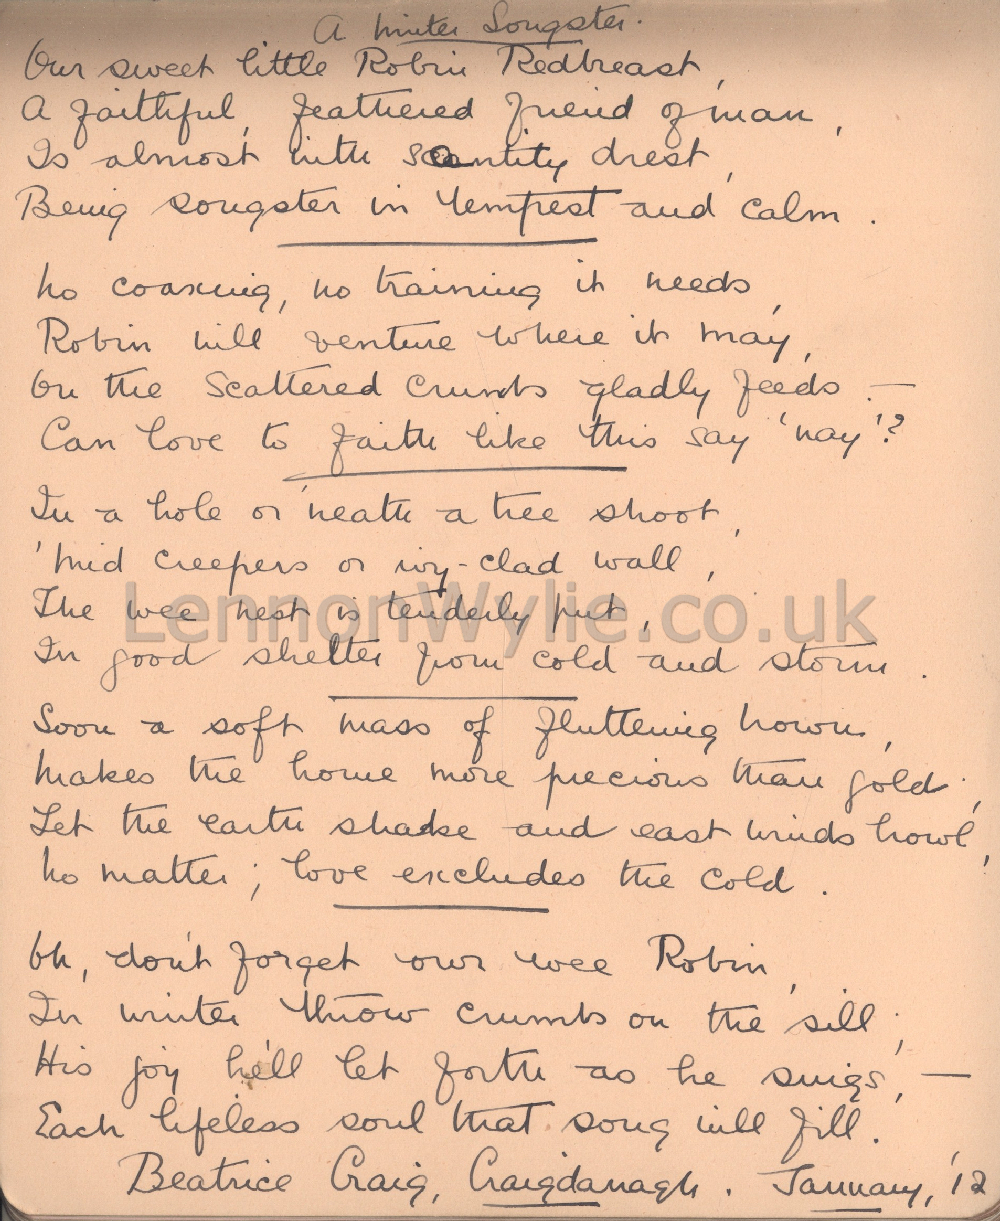 A Winter Songster.
Our sweet little Robin Redbreast,
A faithful, feathered friend of man,
Is almost with sanctity drest,
Being songster in tempest and calm.
No coaxing, no training it needs,
Robin will venture where it may,
On the scattered crumbs gladly feeds –
Can love to faith like this say 'nay'?
In a hole or 'neath a tree shoot,
'Mid creepers or ivy-clad wall,
The wee nest is tenderly put,
In good shelter from cold and storm.
Soon a soft mass of fluttering brown,
Makes the home more precious than gold;
Let the earth shake and east winds howl,
No matter; love excludes the cold.
Oh, don't forget our wee Robin,
In winter throw crumbs on the sill;
His joy he'll let forth as he sings, –
Each lifeless soul that song will fill.
Beatrice Craig, Craigdanagh. January, '12
LennonWylie.co.uk